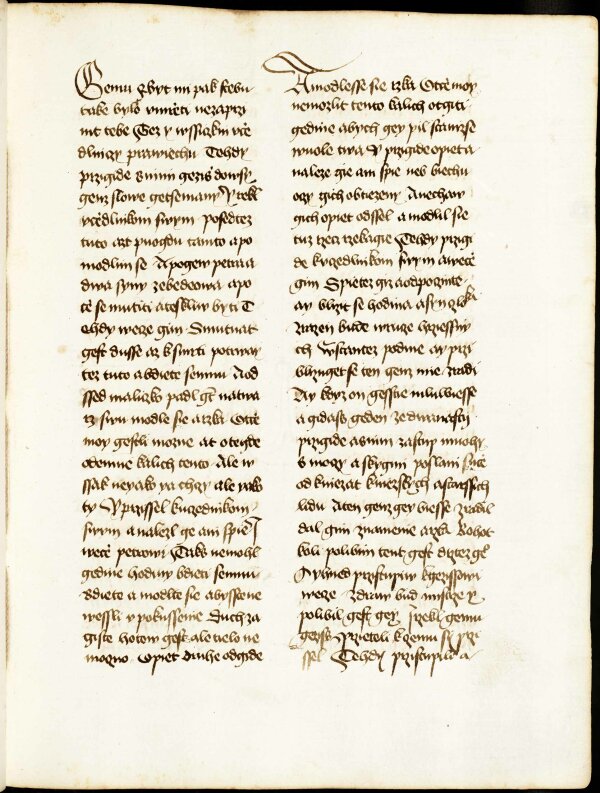 Gemu Zbyt mi pak sebu
take bylo umrieti nezaprzi
mt tebe Gez y wssiczkni vcze
dlniczy prawiechu Tehdy
przigide s nimi gezis do wsy
genz slowe getsemany y wece
vczedlnikom swym posedtez
tuto azt puogdu tamto a po
modlim se A pogem petra a
dwa syny zebedeowa apo
cze se mutiti a teskliw byti T
ehdy wecze gim Smutnat
gest dusse az k smrti potrway
tez tuto a bdiete semnu A od
ssed maliczko padl gest na twa
rz swu modle sie a rzka Otcze
moy gestli mozne at otegde
ode mne kalich tento Ale w
ssak ne yako ya chczy ale yako
ty y przissel k vczedlnikom
swym a nalezl ge ani spie I
wecze petrowi Tako nemohl
gedine hodiny bdieti semnu
Bdiete a modlte sie abysste ne
wessli w pokussenie Duch za
giste hotow gest ale tielo ne
mozno Opiet druhe odgide
A modlesse sie rzka Otcze moy
nemozlit tento kalich otgiti
gedine abych gey pil staniz se
wuole twa y przigide opiet a
naleze gie ani spie neb biechu
oczy gich obtiezeny A nechaw
gich opiet odssel a modlil sie
tuz trzeti rzeka gie Tehdy przigi
de k vczedlnikom swym a wecze
gim Spietez giz a odpoczinte
ay blizt se hodina a syn czlo
wieczi zrazen bude w ruce hrziessny
ch Wstantez podme ay przi
bliziuget se ten genz mie zradi
Ay kdyz on gesstie mluwiesse
a gidass geden ze dwanaczti
przigide a s nim zastup mnohy
s meczy a s kygmi poslani sucze
od kniezat knieezskych a starssich
lidu A ten genz gey biesse zradil
dal gim znamenie a rzka Kohoz
koli polibim tent gest drztez gey
A yhned przistupiw k gezissowi
wecze Zdraw bud mistrze y
polibil gest gey I rzekl gemu
gezis Przieteli k czemu sy przi
ssel Tehdy przistupili a